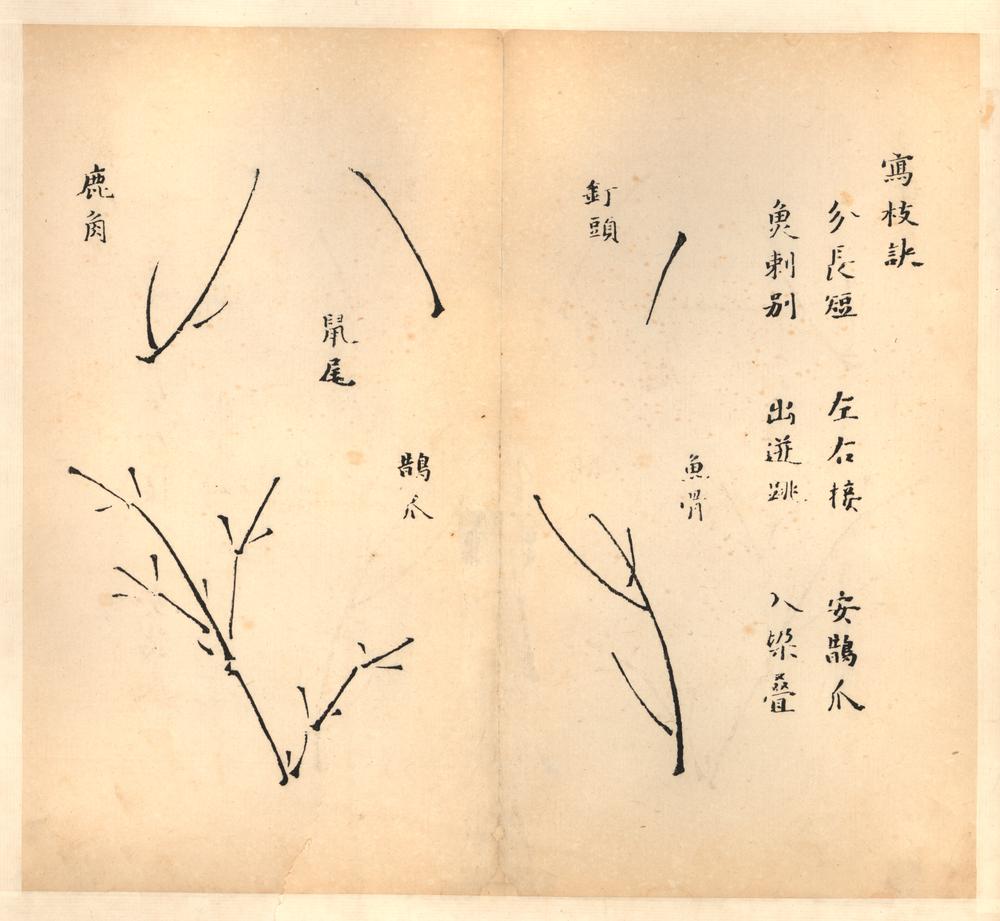 寫枝訣
分長短 左右接 安鵲爪
魚刺別 出迸跳 入垜疊
釘頭
魚骨
鼠尾
鵲爪
鹿角